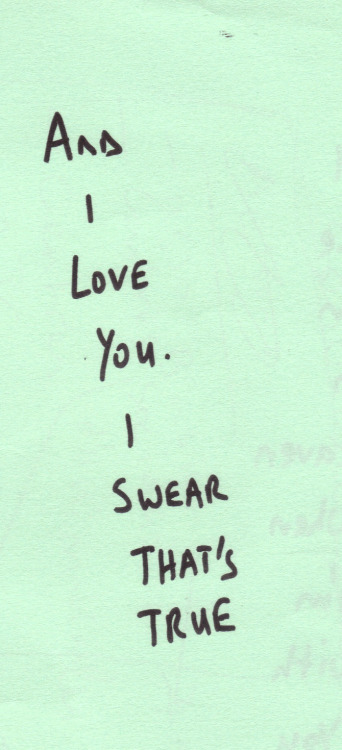 And
I
LOVE
You.
I
SWEAR
THAT'S
TRUE